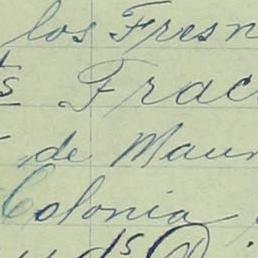 los Fresn
s Frac
de Maur
Colonia
ds